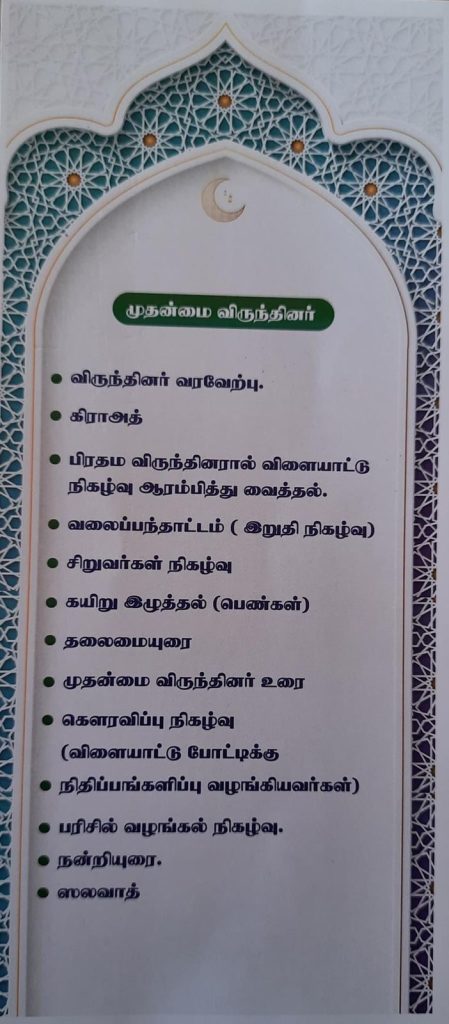 முதன்மை விருந்தினர்
விருந்தினர் வரவேற்பு.
கிராஅத்
பிரதம விருந்தினரால் விளையாட்டு
நிகழ்வு ஆரம்பித்து வைத்தல்.
வலைப்பந்தாட்டம் ( இறுதி நிகழ்வு)
சிறுவர்கள் நிகழ்வு
கயிறு இழுத்தல் (பெண்கள்)
தலைமையுரை
முதன்மை விருந்தினர் உரை
கௌரவிப்பு நிகழ்வு
(விளையாட்டு போட்டிக்கு
நிதிப்பங்களிப்பு வழங்கியவர்கள்)
பரிசில் வழங்கல் நிகழ்வு.
நன்றியுரை.
ஸலவாத்